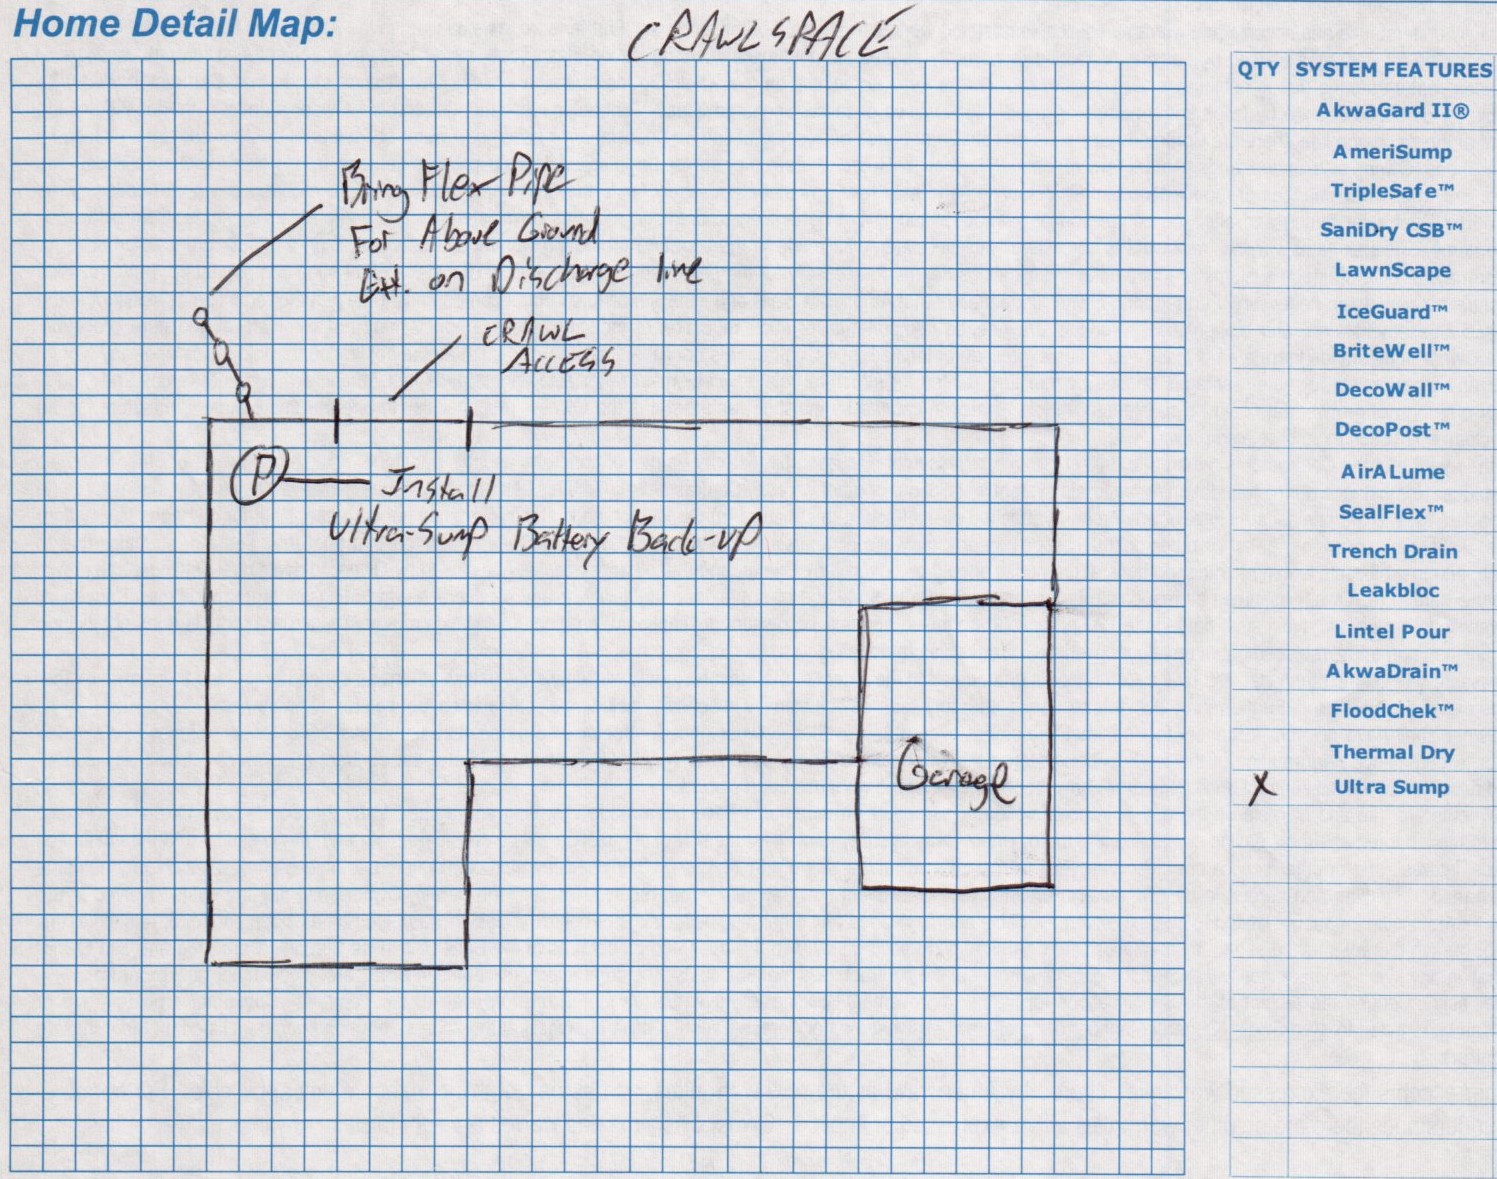 Home Detail Map:
CRAWLSPACE
Bring Flex Pipe
For Above Ground
Ext. on Discharge line
CRAWL
ACCESS
P
Install
Ultra-Sump Battery Back-up
Garage
QTY SYSTEM FEATURES
AkwaGard II®
AmeriSump
TripleSafe™
SaniDry CSB™
LawnScape
IceGuard™
BriteWell™
DecoWall™
DecoPost™
AirALume
SealFlex™
Trench Drain
Leakbloc
Lintel Pour
AkwaDrain™
FloodChek™
Thermal Dry
X Ultra Sump